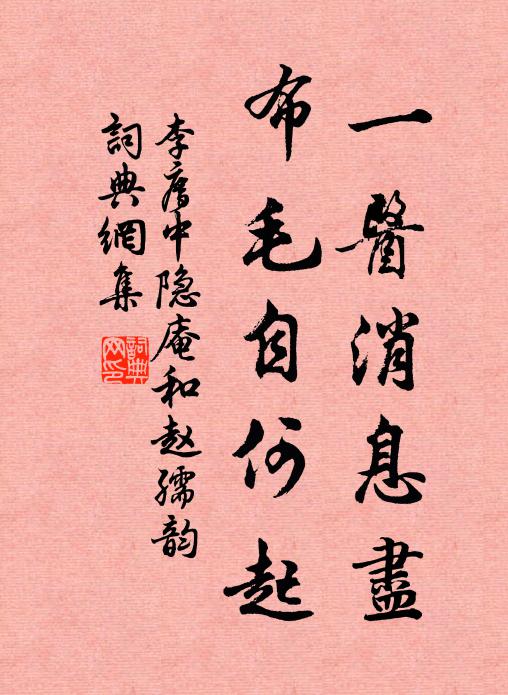 一瞖消息盡
布毛自何起
李中隐庵和赵孺韵
詞典網集
詞典网印